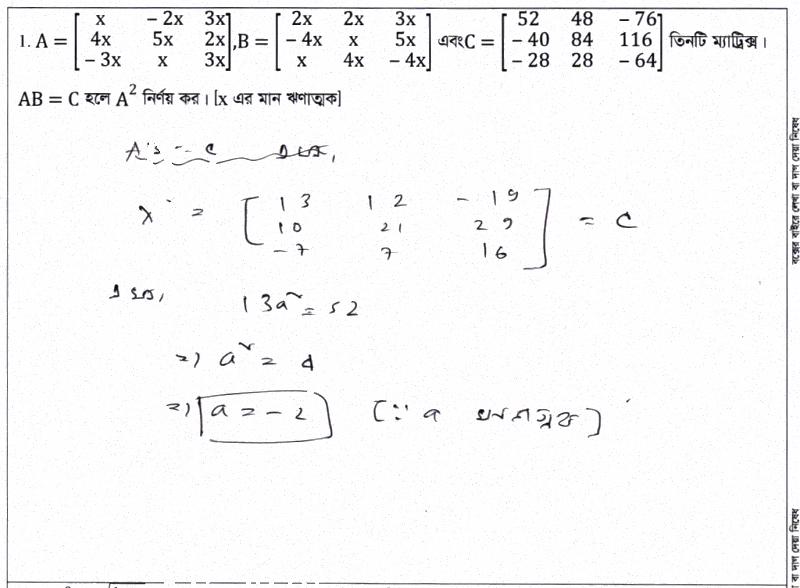 1. A = [x -2x 3x; 4x 5x 2x; -3x x 3x], B = [2x 2x 3x; -4x x 5x; x 4x -4x] এবং C = [52 48 -76; -40 84 116; -28 28 -64] তিনটি ম্যাট্রিক্স।
AB = C হলে A² নির্ণয় কর। [x এর মান ঋণাত্মক]
x² = [13 12 -19; 10 21 29; -7 7 16] = C
13a² = 52
=> a² = 4
=> a = -2 [∵ a
বক্সের বাইরে লেখা বা দাগ দেয়া নিষেধ
বা দাগ দেয়া নিষেধ